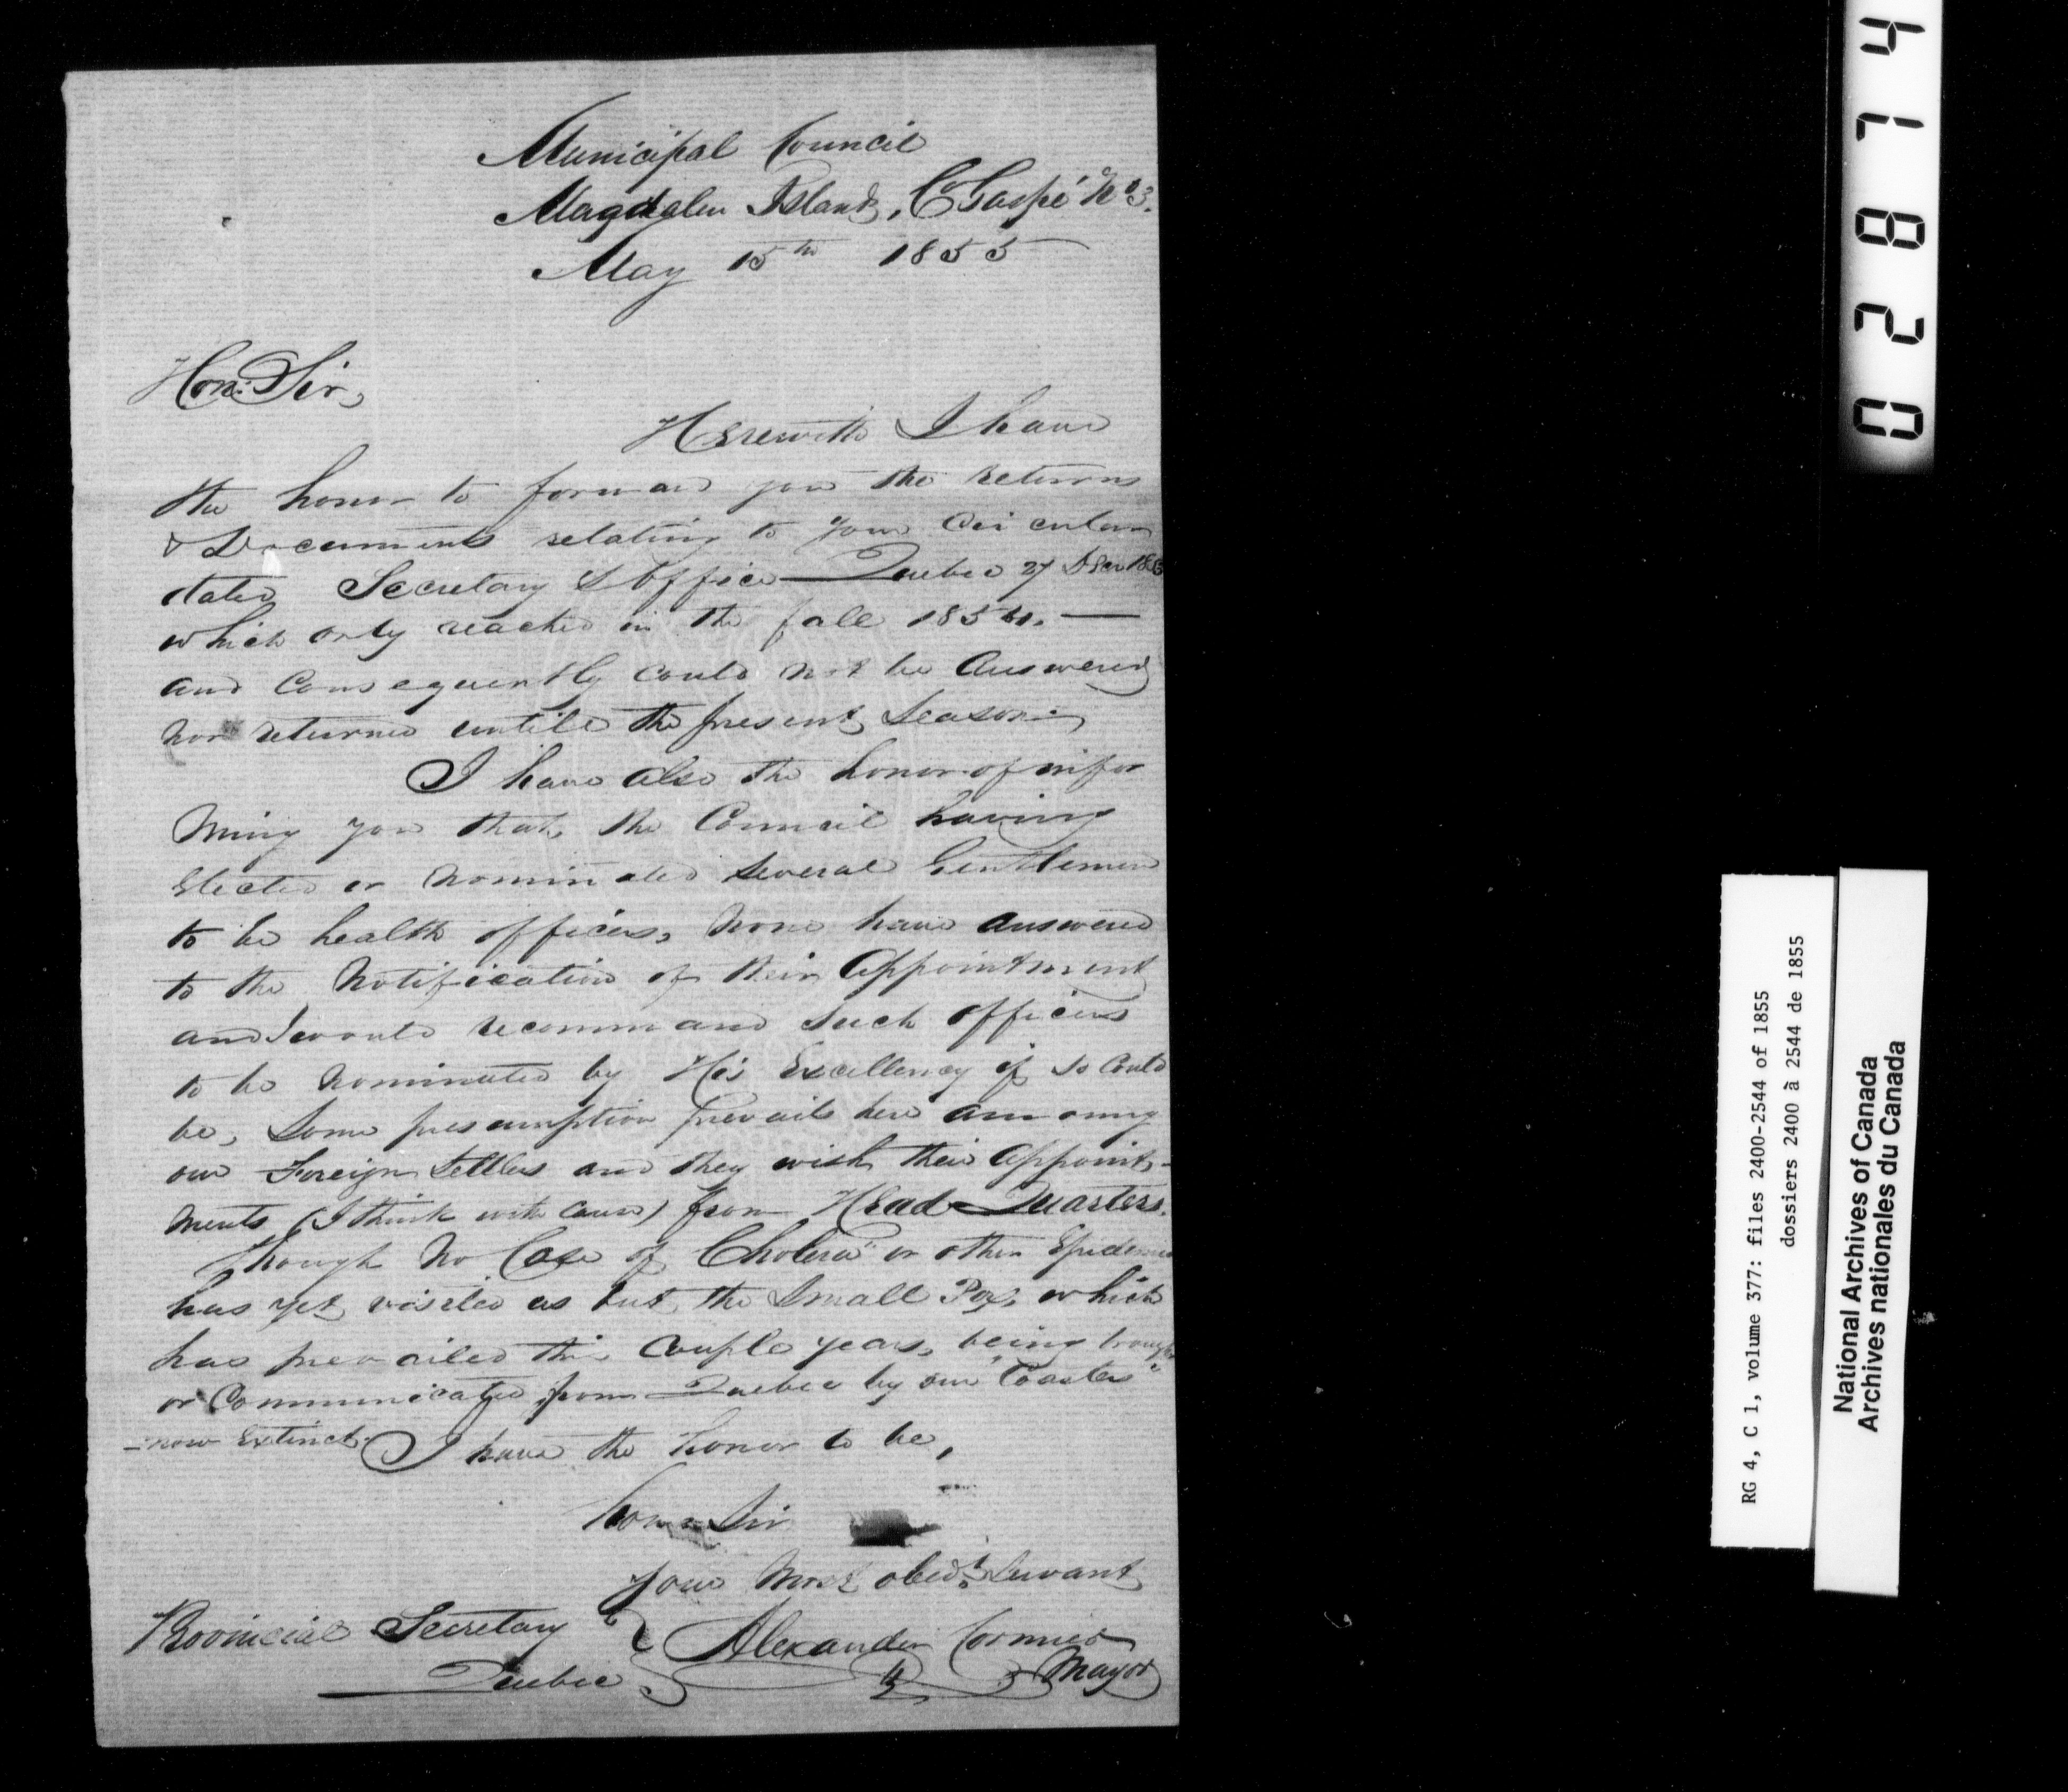 Municipal Council
Magdalen Islands, C Gaspé No 3.
May 15th 1855
Hon: Sir,
Herewith I have
the honor to forward you the returns
& Documents relating to your Circular
dated Secretary's Office Quebec 27 Decr 1853
which only reached in the fall 1854. —
and Consequently could not be Answered
nor returned untill the present Season
I have also the honor of infor
ming you that the Council having
Elected or Nominated several Gentlemen
to be health officers, none have answered
to the Notification of their Appointment
and I would recommand such officers
to be Nominated by His Excellency if so could
be, Some presumption prevails here amoung
our Foreign Settlers and they wish their Appoint-
ments (I think with cause) from Head Quarters.
Though No Case of Cholera" or other Epidemic
has yet visited us but the Small Pox, which
has prevailed this Couple years, being brought
or Communicated from Quebec by our "Coasters"
- now Extinct. I have the honor to be,
Hon. Sir
Your Most obedt. Servant
Provincial Secretary
Quebec
Alexander Cormier
Mayor
02874
RG 4, C 1, volume 377: files 2400-2544 of 1855
dossiers 2400 à 2544 de 1855
National Archives of Canada
Archives nationales du Canada